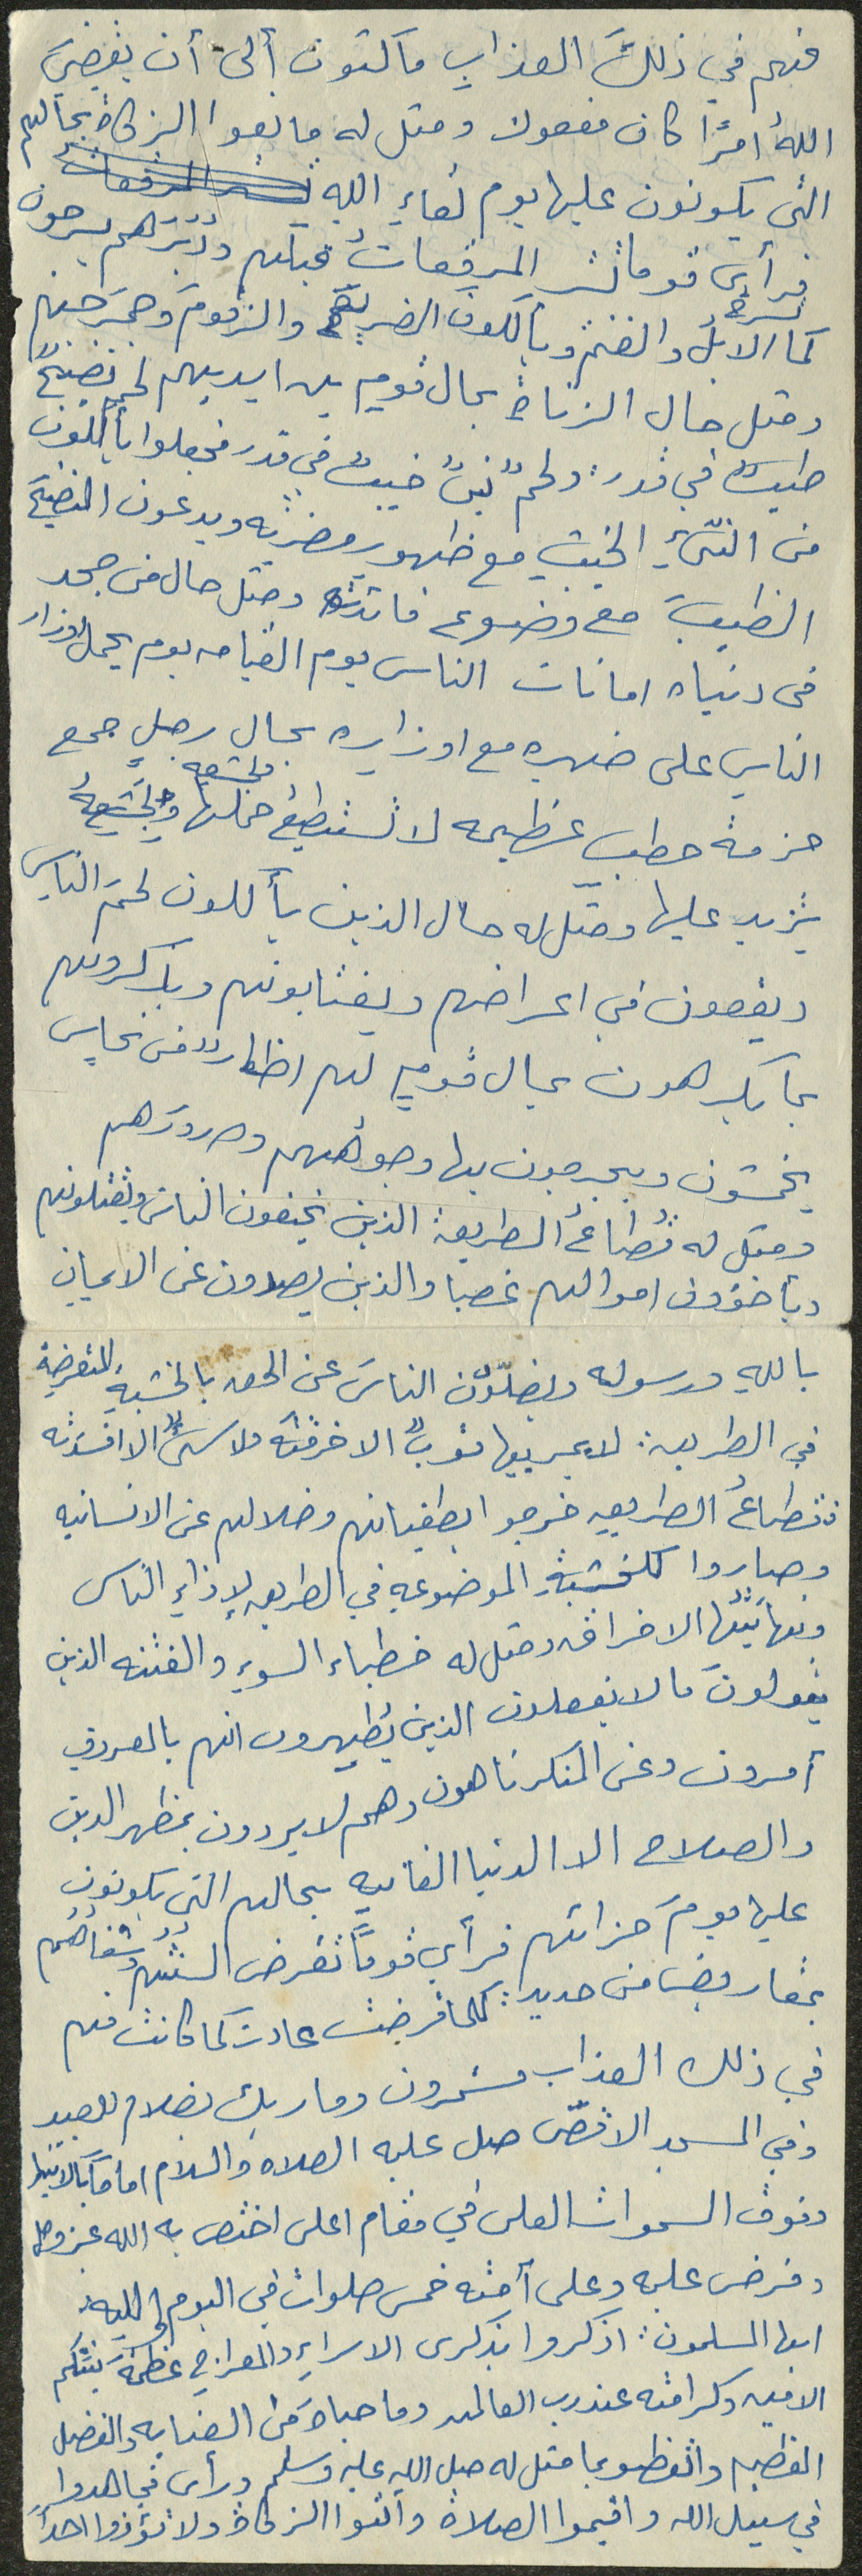 فهم في ذلكَ العذابِ ماكثون ألى أن يقضيَ
اللهُ امرًا كان مفعولا ومثل له مانعوا الزكاة بحالهم
التى يكونون عليها يوم لقاءِ اللهِ
فرأى قوما تشر المرقعات قبلهم ودُبُرَهم يسرحون
كما تسرح الابل والغنم ويأكلون الضريع والزقومَ وجمرَ جهنم
ومثل حال الزناة بحال قومٍ بين ايديهم لحم نضيجٌ
طيبٌ في قدر: ولحمٌ نيٌ خبيثٌ في قدر فجعلوا يأكلون
من النيّءِ الخبيثِ مع ظهور مضرته ويدعون النضيجَ
الطيبَ مع وضوح فائدته ومثل حال من جحد
فى دنياه امانات الناس يوم القيامه يوم يحمل اوزار
الناس على ضهره مع اوزاره بحال رجلٍ جمع
حزمة حطب عظيمه لا تستطيعُ حملها ولجشعه
يزيد عليها ومثّل له حال الذين يأكلون لحمَ الناسِ
ويقعون في اعراضهم ويغتابونهم ويذكرونهم
بما يكرهون بحال قومٍ لهم اظفارٌ من نحاس
يخمشون ويجرحون بها وجوههم وصدورَهم
ومثل له قُطاعُ الطريق الذين يخيفون الناس ويقتلونهم
ويأخذون اموالهم غصبا والذين يصدون عن الايمان
باللهِ ورسوله ويضلّون الناسَ عن الحق بالخشبةِ المتعرضة
في الطريق: لا يمر بها ثوبٌ الا خرقته ولا شئٌ الا افسدته
فقطاعُ الطريق خرجوا بطغيانهم وضلالهم عن الانسانيه
وصاروا كالخشبة الموضوعه في الطريق لإذاءِ الناس
ونهايتُها الاحراق ومثل له خطباء السوءِ والفتنه الذين
يقولونَ ما لا يفعلون الذين يُظهرون انهم بالمعروف
أمرون وعن المنكر ناهون وهم لا يريدون بمظهر الدين
والصلاح الا الدنيا الفانيه بحالهم التى يكونون
عليها يومَ جزائهم فرأى قومًا تقرض السنتهم وشفاههم
بمقاريض من حديد: كلما قرضت عادت كما كانت فهم
في ذلك العذاب مستمرون وما ربك بضلام للعبيد
وفي المسجد الاقصّى صلى عليه الصلاه والسلام امامًا بالانبياء
وفوق السموات العلى في مقام اعلى اختص به الله عز وجل
وفرض عليه وعلى أمته خمس صلوات في اليوم والليله.
ايها المسلمون: اذكروا بذكرى الاسراءِ والمعراج عظمةَ نبيكم
الامين وكرامته عند رب العالمين وما حباهُ من العنايه والفضل
العظيم واتعظو بما مثل له صلى الله عليه وسلم ورأى فجاهدوا
في سبيل الله واقيموا الصلاة وآتوا الزكاة ولا تؤذوا احداً